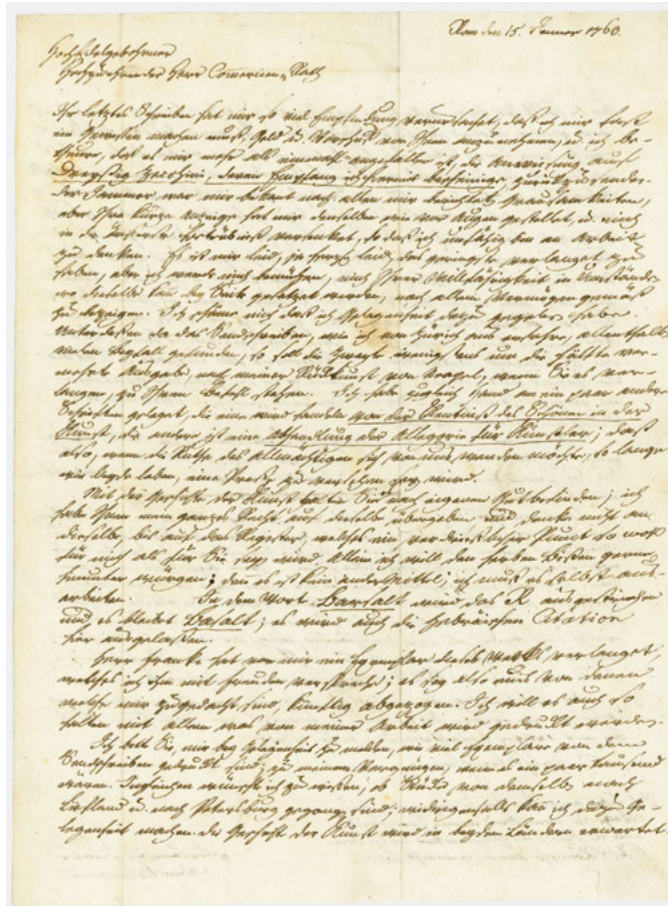 Rom den 15. Jenner 1763.
HochEdelgebohrner
Hochzuehrender Herr Commercien-Rath
Ihr letztes Schreiben hat mir so viel Empfindung verursachet, daß ich mir fast
ein Gewissen machen muß, Geld u. Vorschuß von Ihnen anzunehmen, u. ich be-
theure, daß es mir mehr als einmahl eingefallen ist, die Anweisung auf
Dreyßig Zecchini, deren Empfang ich hiermit bescheinige, zurück zu senden.
Der Jammer war mir bekant nach allen mir berichteten Grausamkeiten,
aber Ihre kurze Anzeige hat mir denselben wie vor Augen gestellet, u. mich
in die äußerste Betrübniß versenket, so daß ich unfähig bin an Arbeit
zu denken. Es ist mir leid, ja herzl. leid, das geringste verlanget zu
haben, aber ich werde mich bemühen, mich Ihrer Willfährigkeit in Umständen
wo dieselbe kan bey Seite gesetzet werden, nach allem Vermögen gemäß
zu bezeigen. Ich schäme mich daß ich Gelegenheit dazu gegeben habe.
Unterdessen da das Sendschreiben, wie ich von Zürich aus erfahre, allenthalb
vielen Beyfall gefunden, so soll die zweyte wenigstens um die Hälfte ver-
mehrte Ausgabe, nach meiner Rückkunft von Neapel, wenn Sie es ver-
langen, zu Ihrem Befehl stehen. Ich habe zugleich Hand an ein paar andere
Schriften geleget, die eine wird handeln von der Kentniß des Schönen in der
Kunst, die andere ist eine Abhandlung der Allegorie für Künstler; daß
also, wenn die Ruthe des Allmächtigen sich von uns wenden möchte, so lange
wir beyde leben, eine Presse zu versehen seyn wird.
Mit der Geschichte der Kunst halten Sie es nach eigenem Gutbefinden; ich
habe Ihnen mein ganzes Recht auf dieselbe übergeben und denke nicht an
dieselbe, bis auf den Register, welches ein verdrießlicher Punct so wohl
für mich als für Sie seyn wird. Allein ich will den herben Bissen gerne
hinunter würgen; denn es ist kein ander Mittel, ich muß es selbst aus-
arbeiten. In dem Wort Barsalt wird das R ausgestrichen
und es bleibet Basalt; es wird auch die Hebräischen Citation
hier ausgelassen.
Herr Franke hat von mir ein Exemplar dieses Werks verlanget,
welches ich ihm mit Freuden verspreche; es sey also auch von denen
welche mir zugedacht sind, künftig abgezogen. Ich will es auch so
halten mit allem was von meiner Arbeit wird gedruckt werden.
Ich bitte Sie, mir bey Gelegenheit zu melden, wie viel Exemplare von dem
Sendschreiben gedruckt sind; zu meinem Vergnügen, wenn es ein paar tausend
wären. Ingleichen wünscht ich zu wissen, ob Stücke von demselben nach
Liefland u. nach Petersburg gegangen sind; widrigenfalls kan ich dazu Ge-
legenheit machen. Die Geschichte der Kunst wird in beyden Ländern erwartet.